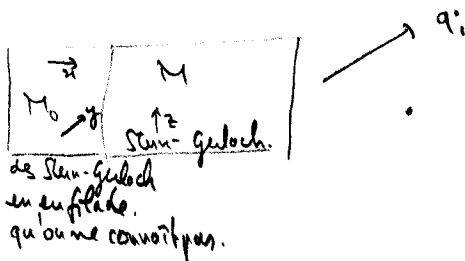 q_i
x M
M_0 y z
Stern-Gerloch.
des Stern-Gerloch
en enfilade.
qu'on ne connoît pas.